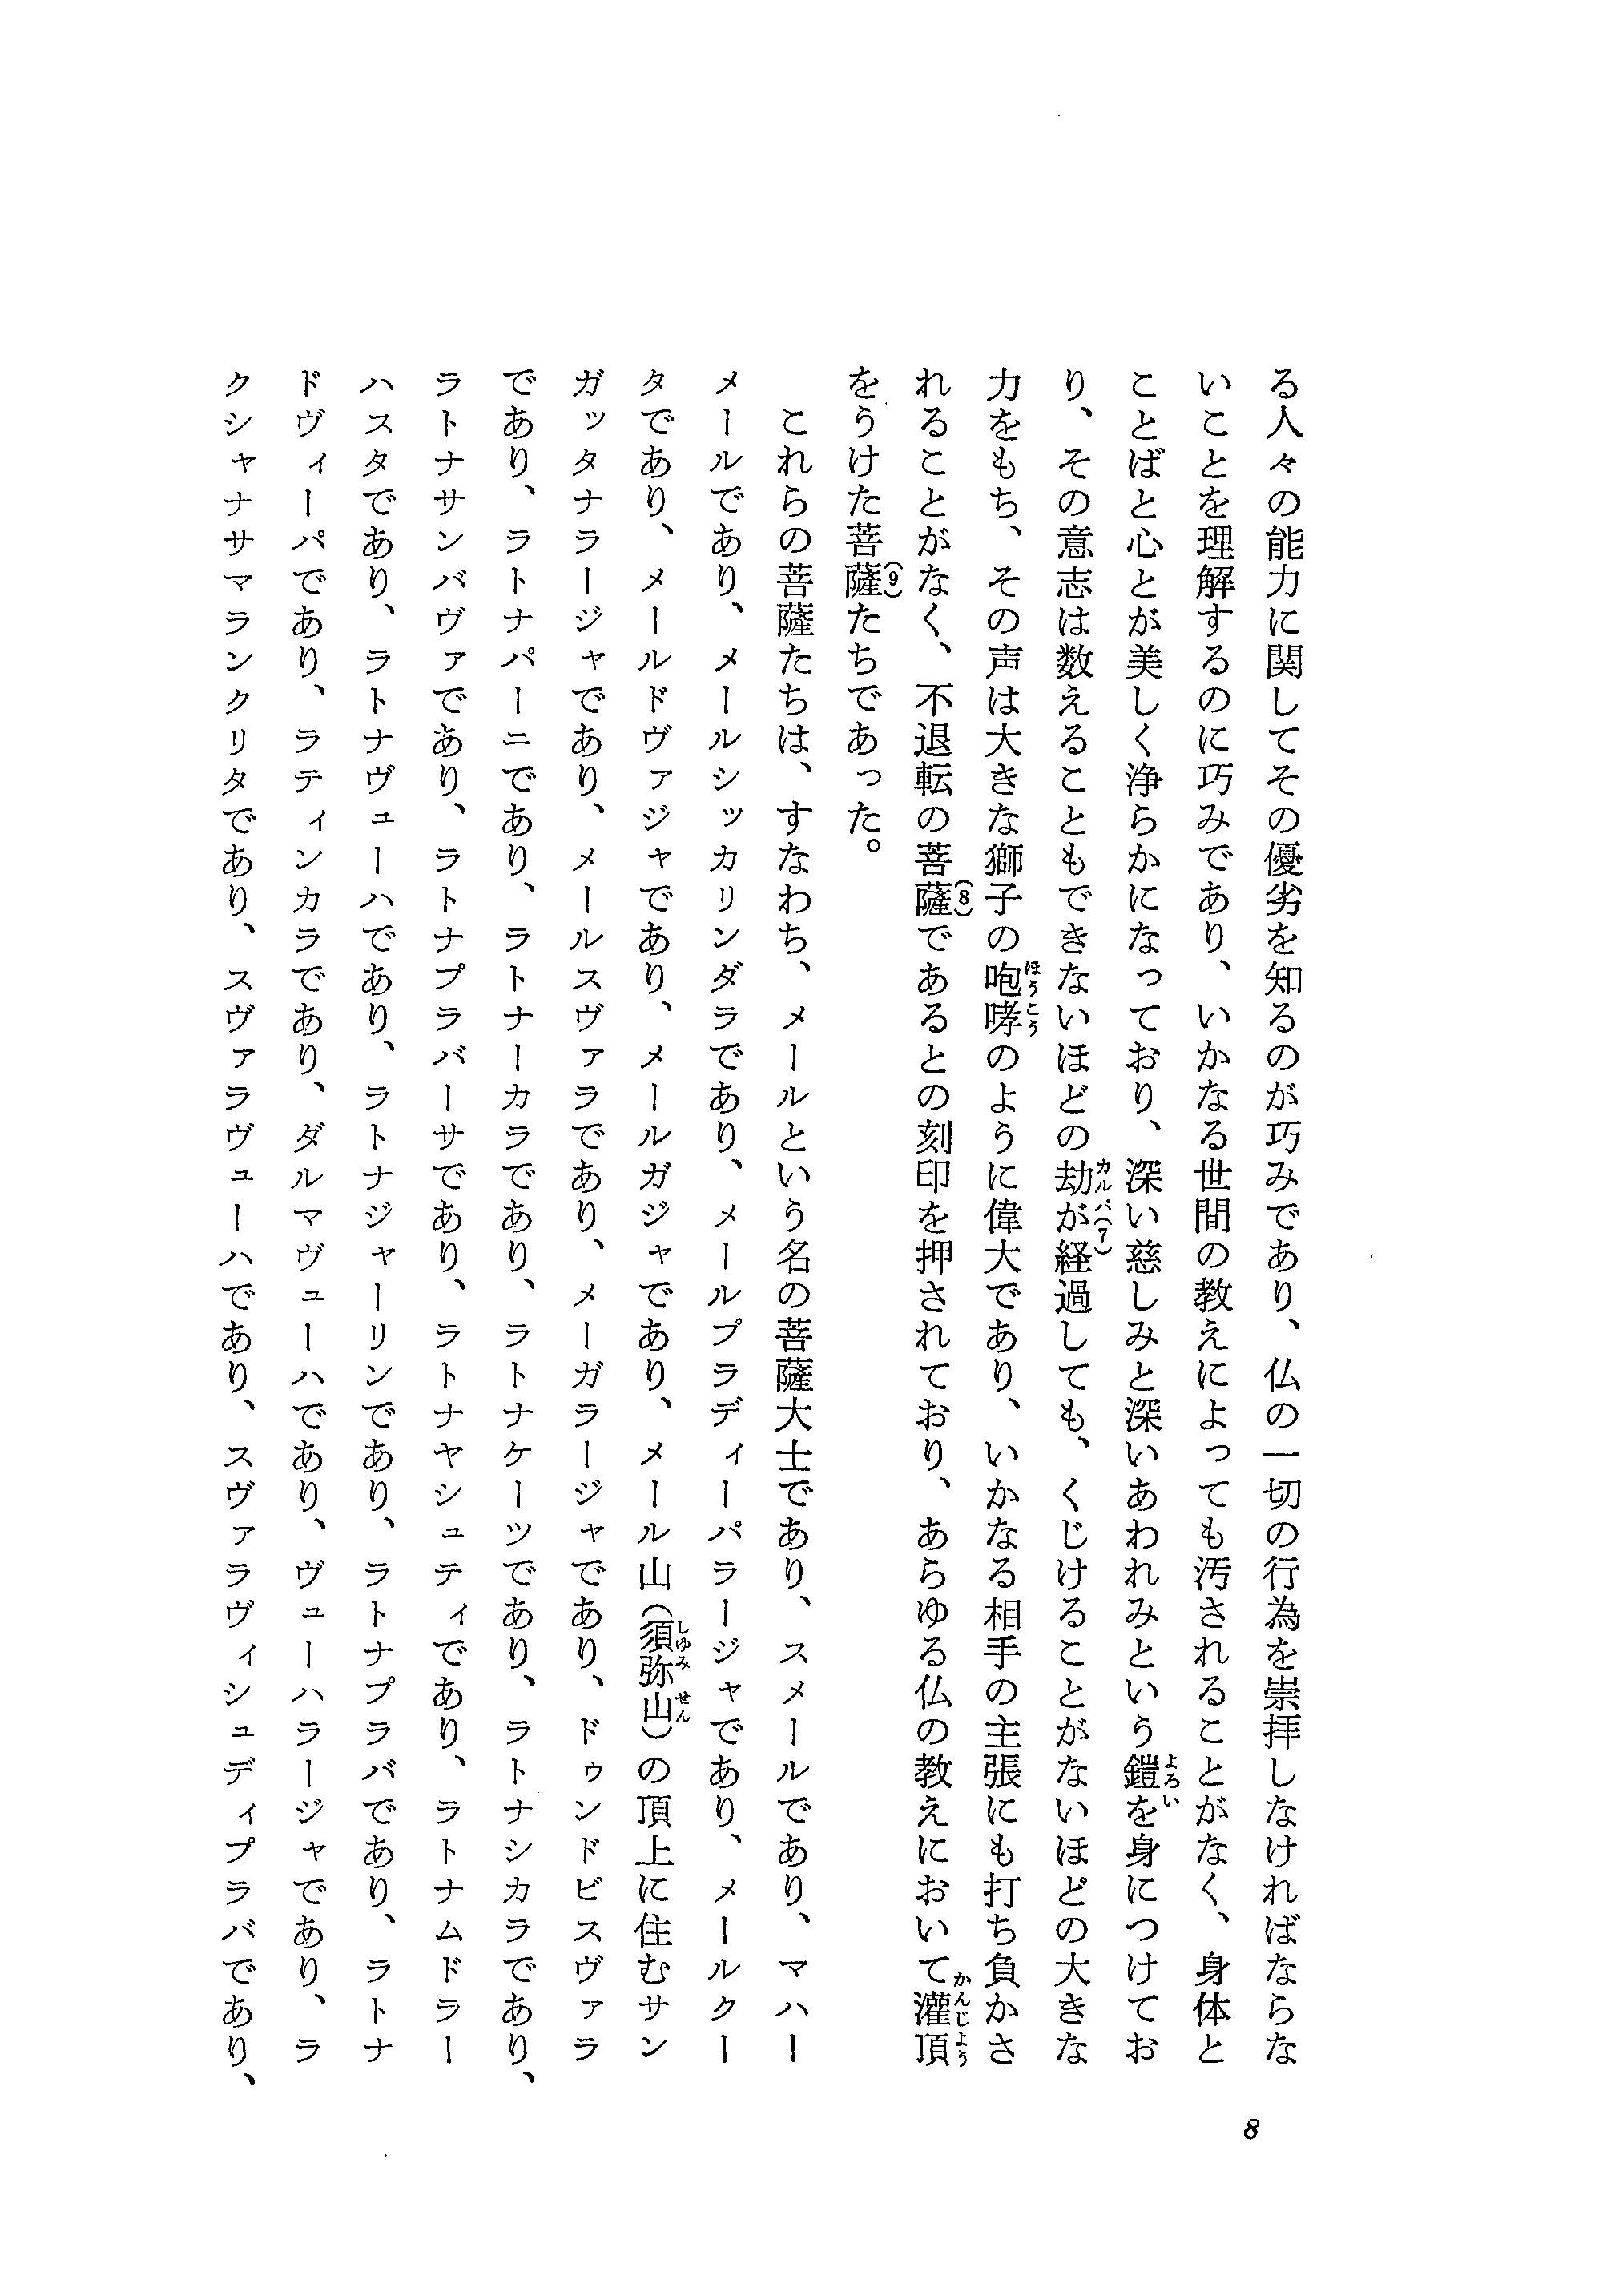 る人々の能力に関してその優劣を知るのが巧みであり、仏の一切の行為を崇拝しなければならな
いことを理解するのに巧みであり、いかなる世間の教えによっても汚されることがなく、身体と
ことばと心とが美しく浄らかになっており、深い慈しみと深いあわれみという鎧を身につけてお
り、その意志は数えることもできないほどの劫が経過しても、くじけることがないほどの大きな
力をもち、その声は大きな獅子の咆哮のように偉大であり、いかなる相手の主張にも打ち負かさ
れることがなく、不退転の菩薩(8)であるとの刻印を押されており、あらゆる仏の教えにおいて灌頂
をうけた菩薩(9)たちであった。
これらの菩薩たちは、すなわち、メールという名の菩薩大士であり、スメールであり、マハー
メールであり、メールシッカリンダラであり、メールプラディーパラージャであり、メールクー
タであり、メールドヴァジャであり、メールガジャであり、メール山(須弥山)の頂上に住むサン
ガッタナラージャであり、メールスヴァラであり、メーガラージャであり、ドゥンドビスヴァラ
であり、ラトナパーニであり、ラトナーカラであり、ラトナケーツであり、ラトナシカラであり、
ラトナサンバヴァであり、ラトナプラバーサであり、ラトナヤシュティであり、ラトナムドラー
ハスタであり、ラトナヴューハであり、ラトナジャーリンであり、ラトナプラバであり、ラトナ
ドヴィーパであり、ラティンカラであり、ダルマヴューハであり、ヴューハラージャであり、ラ
クシャナサマランクリタであり、スヴァラヴューハであり、スヴァラヴィシュディプラバであり、
8